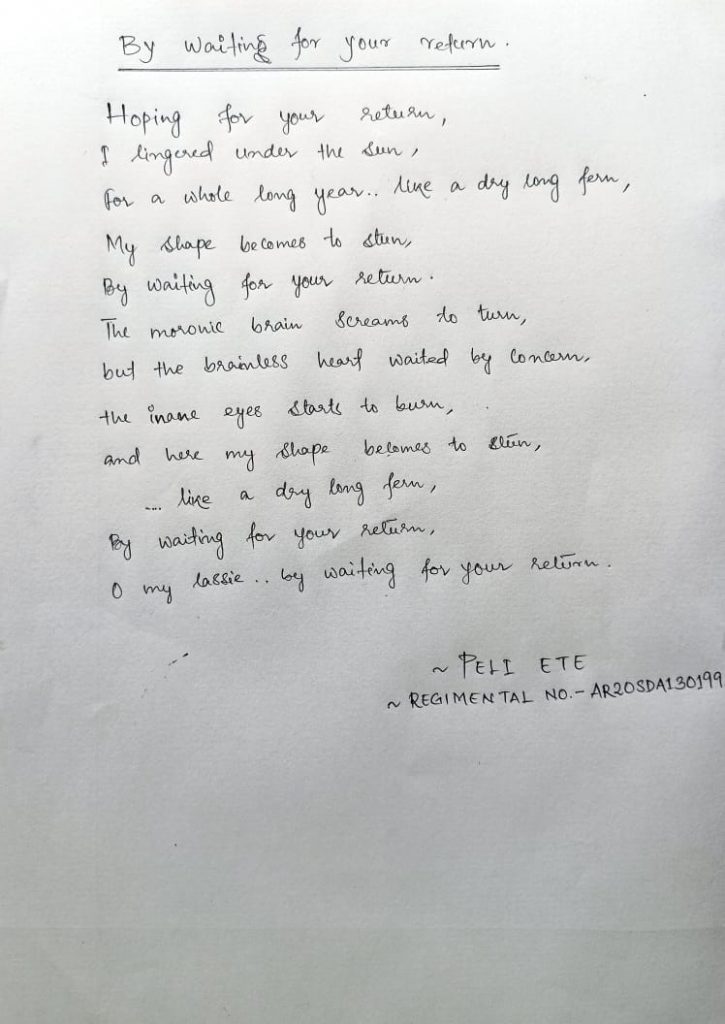 By waiting for your return.
Hoping for your return,
I lingered under the sun,
for a whole long year.. like a dry long fern,
My shape becomes to stun,
By waiting for your return.
The moronic brain screams to turn,
but the brainless heart waited by concern,
the inane eyes starts to burn,
and here my shape becomes to stun,
.... like a dry long fern,
By waiting for your return,
O my lassie.. by waiting for your return.
~ PELI ETE
~ REGIMENTAL NO.- AR20SDA130199